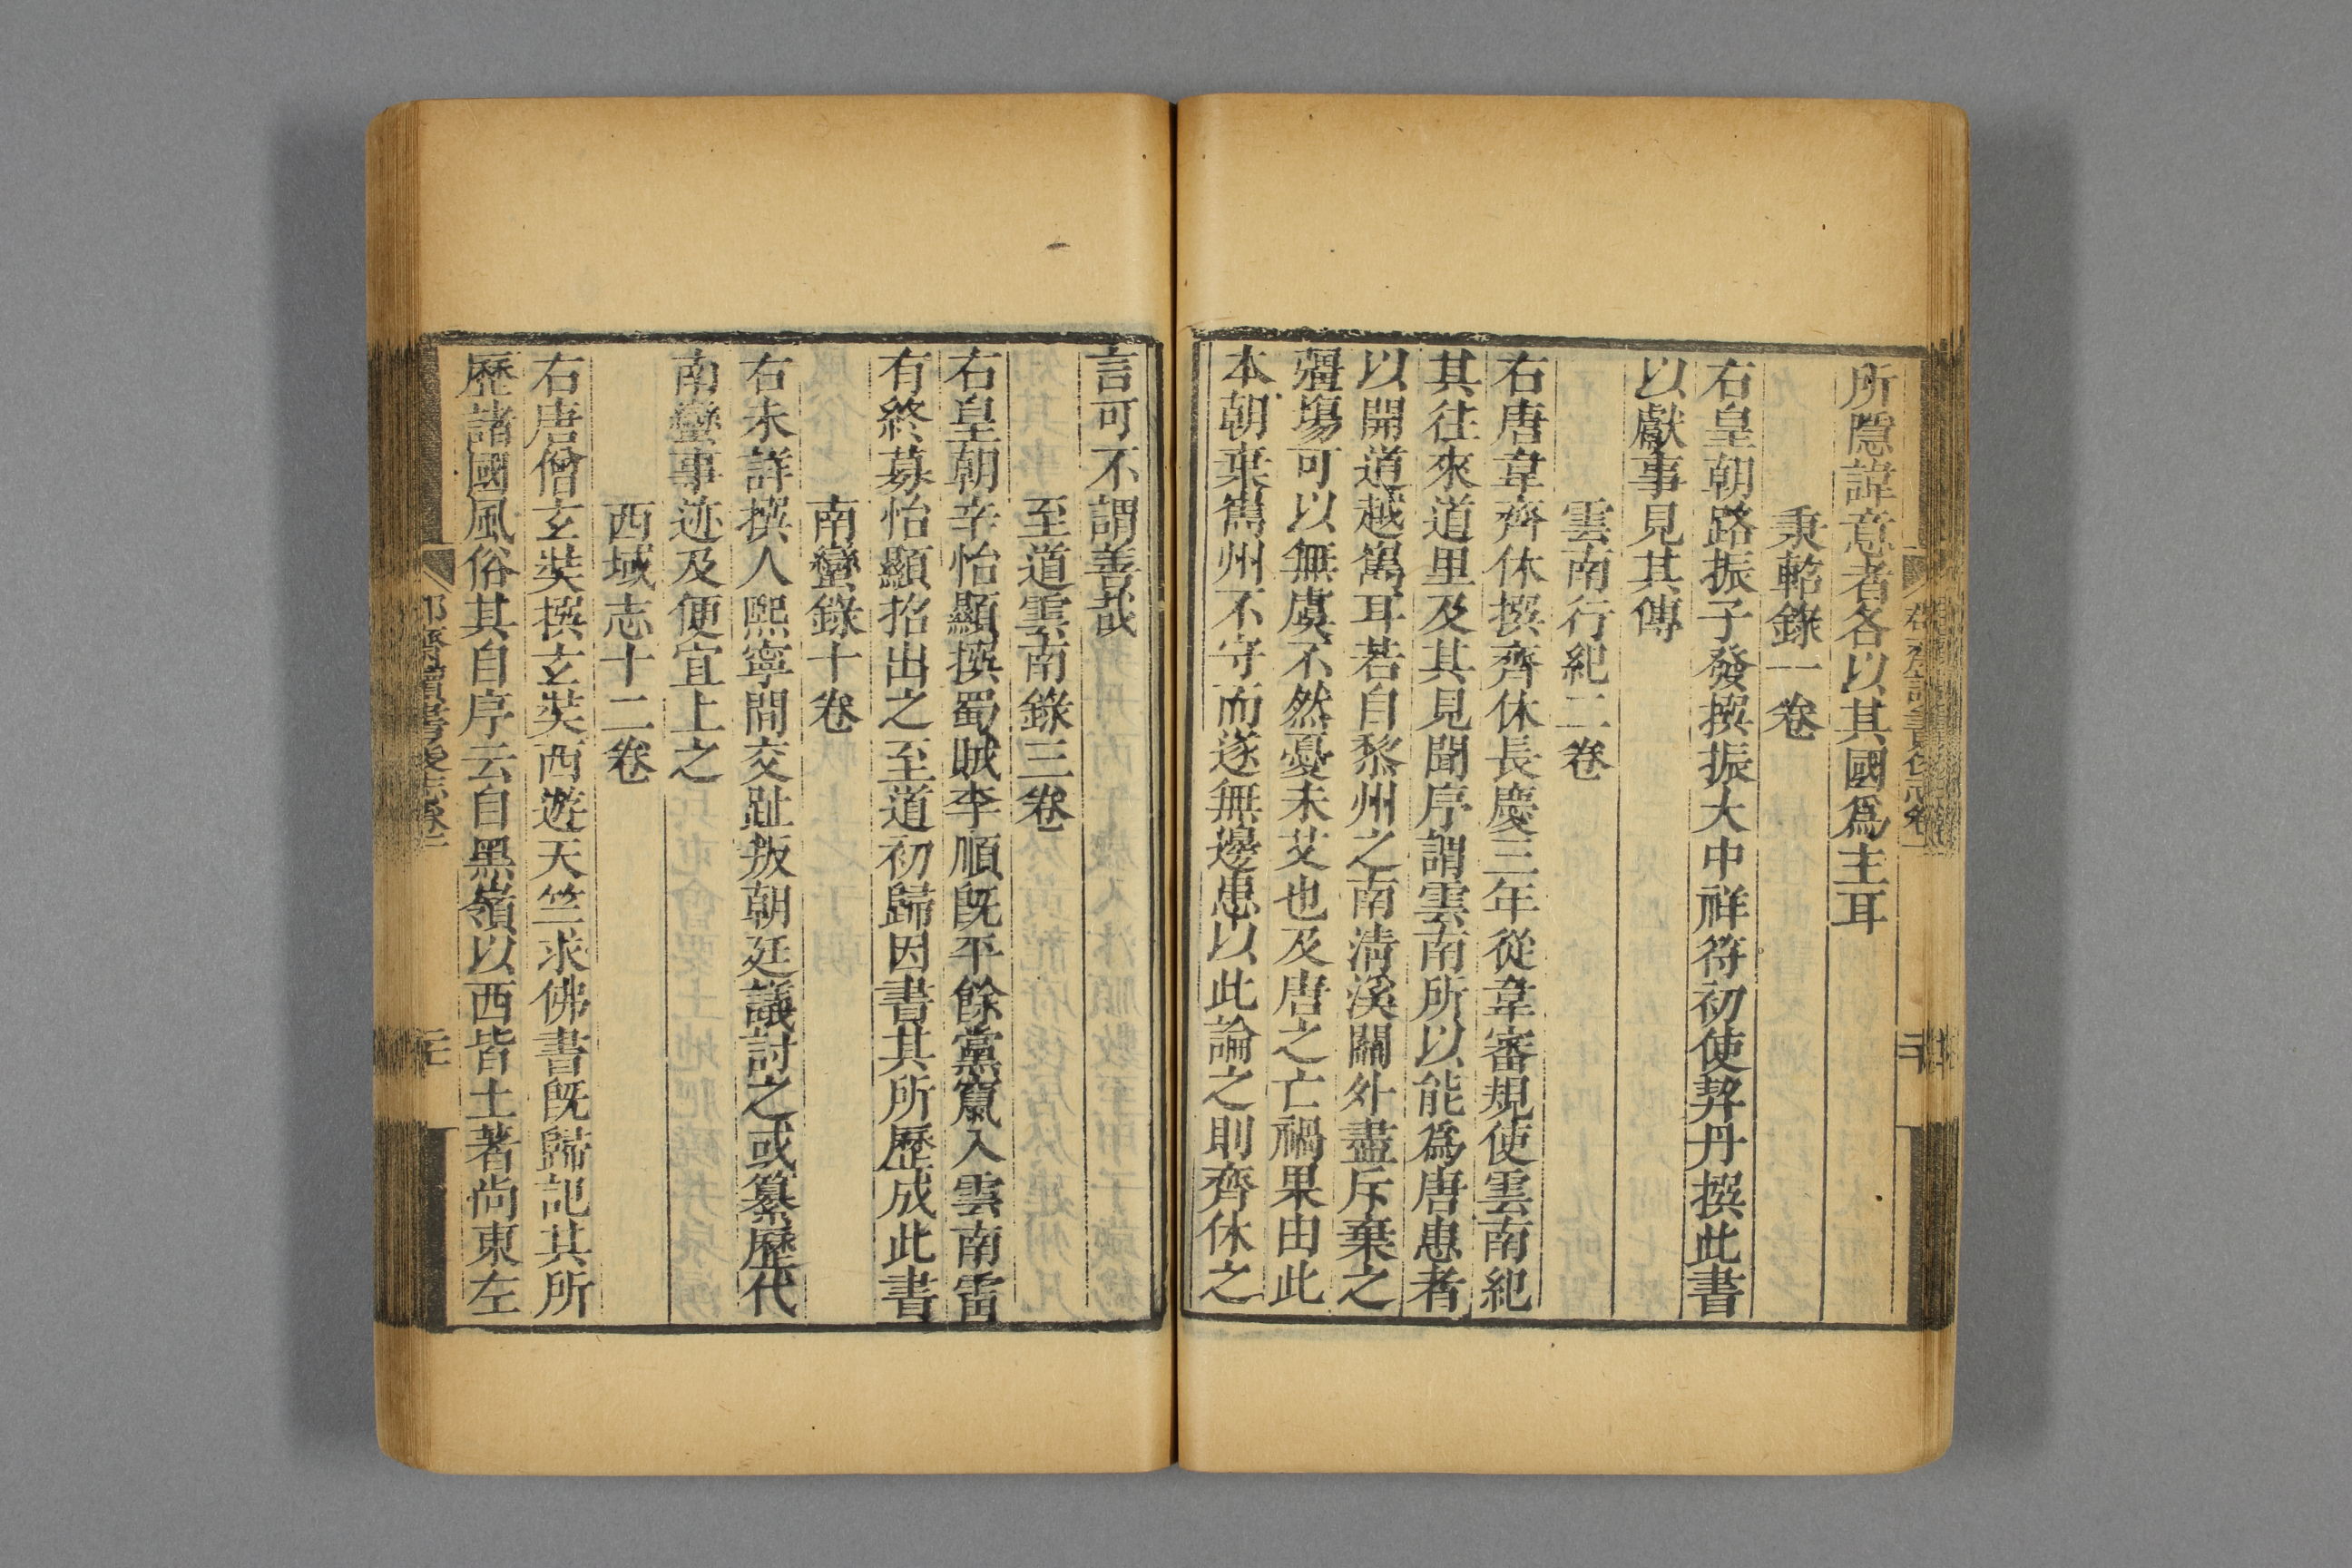 所隱諱意者各以其國爲主耳
秉軺錄一卷
右皇朝路振子發撰振大中祥符初使契丹撰此書
以獻事見其傳
雲南行紀二卷
右唐韋齊休撰齊休長慶三年從韋審規使雲南紀
其往來道里及其見聞序謂雲南所以能爲唐患者
以開道越嶲耳若自黎州之南清溪關外盡斥棄之
疆塲可以無虞不然憂未艾也及唐之亡禍果由此
本朝棄嶲州不守而遂無邊患以此論之則齊休之
言可不謂善哉
至道雲南錄三卷
右皇朝辛怡顯撰蜀賊李順旣平餘黨竄入雲南雷
有終募怡顯招出之至道初歸因書其所歷成此書
南蠻錄十卷
右未詳撰人熙寧間交趾叛朝廷議討之或纂歷代
南蠻事迹及便宜上之
西域志十二卷
右唐僧玄奘撰玄奘西遊天竺求佛書旣歸記其所
歷諸國風俗其自序云自黑嶺以西皆土著尚東左